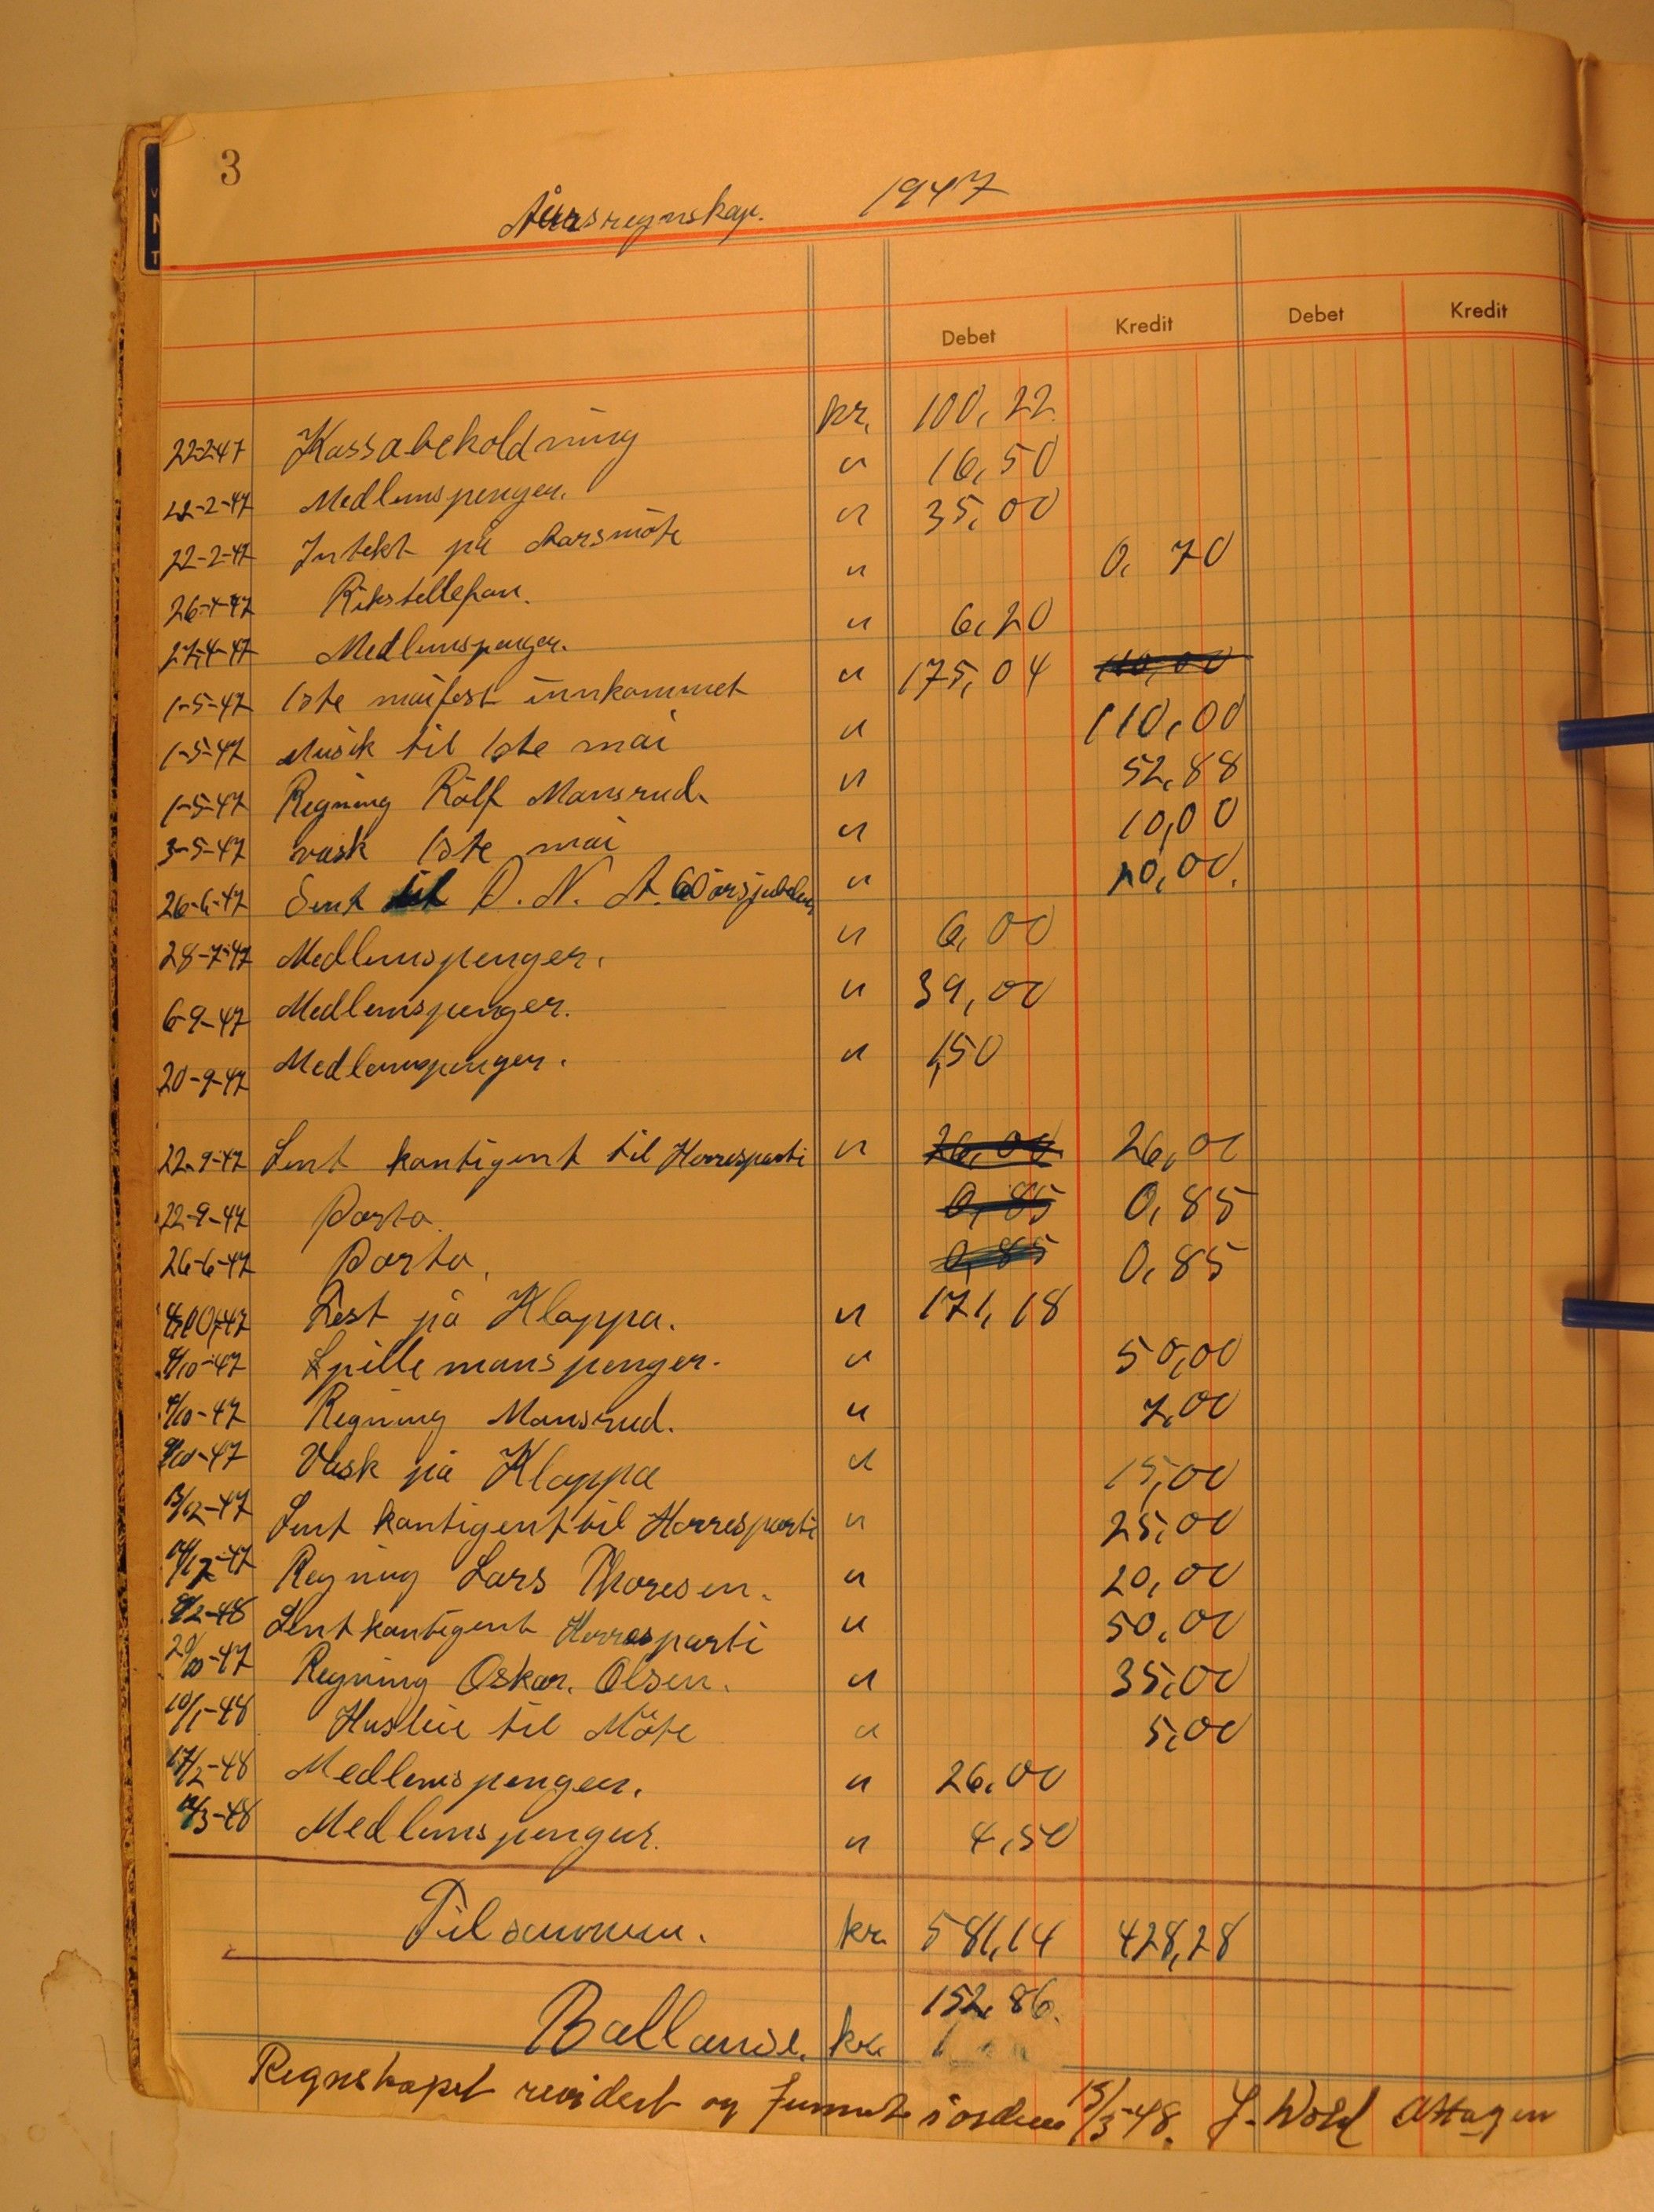 3
Årsregnskap. 1947
Debet Kredit Debet Kredit
22-2-47 Kassabeholdning kr. 100,22
22-2-47 Medlemspenger. " 16,50
22-2-47 Intekt på Aarsmöte " 35,00
26-4-47 Rikstellefon. " 0,70
27-4-47 Medlemspenger. " 6,20
1-5-47 1ste maifest innkommet " 175,04 110,00
1-5-47 Musik til 1ste mai " 110,00
1-5-47 Regning Rolf Mansrud. " 52,88
3-5-47 vask 1ste mai " 10,00
26-6-47 Sent til D.N.A. 60 årsjubileum " 10,00.
28-7-47 Medlemspenger. " 6,00
6-9-47 Medlemspenger. " 39,00
20-9-47 Medlemspenger. " 1,50
22-9-47 Sent kontigent til Herresparti " 26,00 26,00
22-9-47 Porto. 0,85 0,85
26-6-47 Porto. 0,85 0,85
Fest på Kloppa. " 171,18
4/10-47 Spillemanspenger. " 50,00
4/10-47 Regning Mansrud. " 7,00
9/10-47 Vask på Kloppa " 15,00
13/12-47 Sent kontigent til Herresparti " 25,00
Regning Lars Thoresen. " 20,00
9/2-48 Sent kontigent Herresparti " 50,00
20/10-47 Regning Oskar Olsen. " 35,00
10/1-48 Husleie til Möte " 5,00
17/2-48 Medlemspenger. " 26,00
Medlemspenger. " 4,50
Tilsammen. kr. 581,14 428,28
152,86.
Ballanse. kr.
Regnskapet revidert og funnet i orden 15/3-48. J. Wold